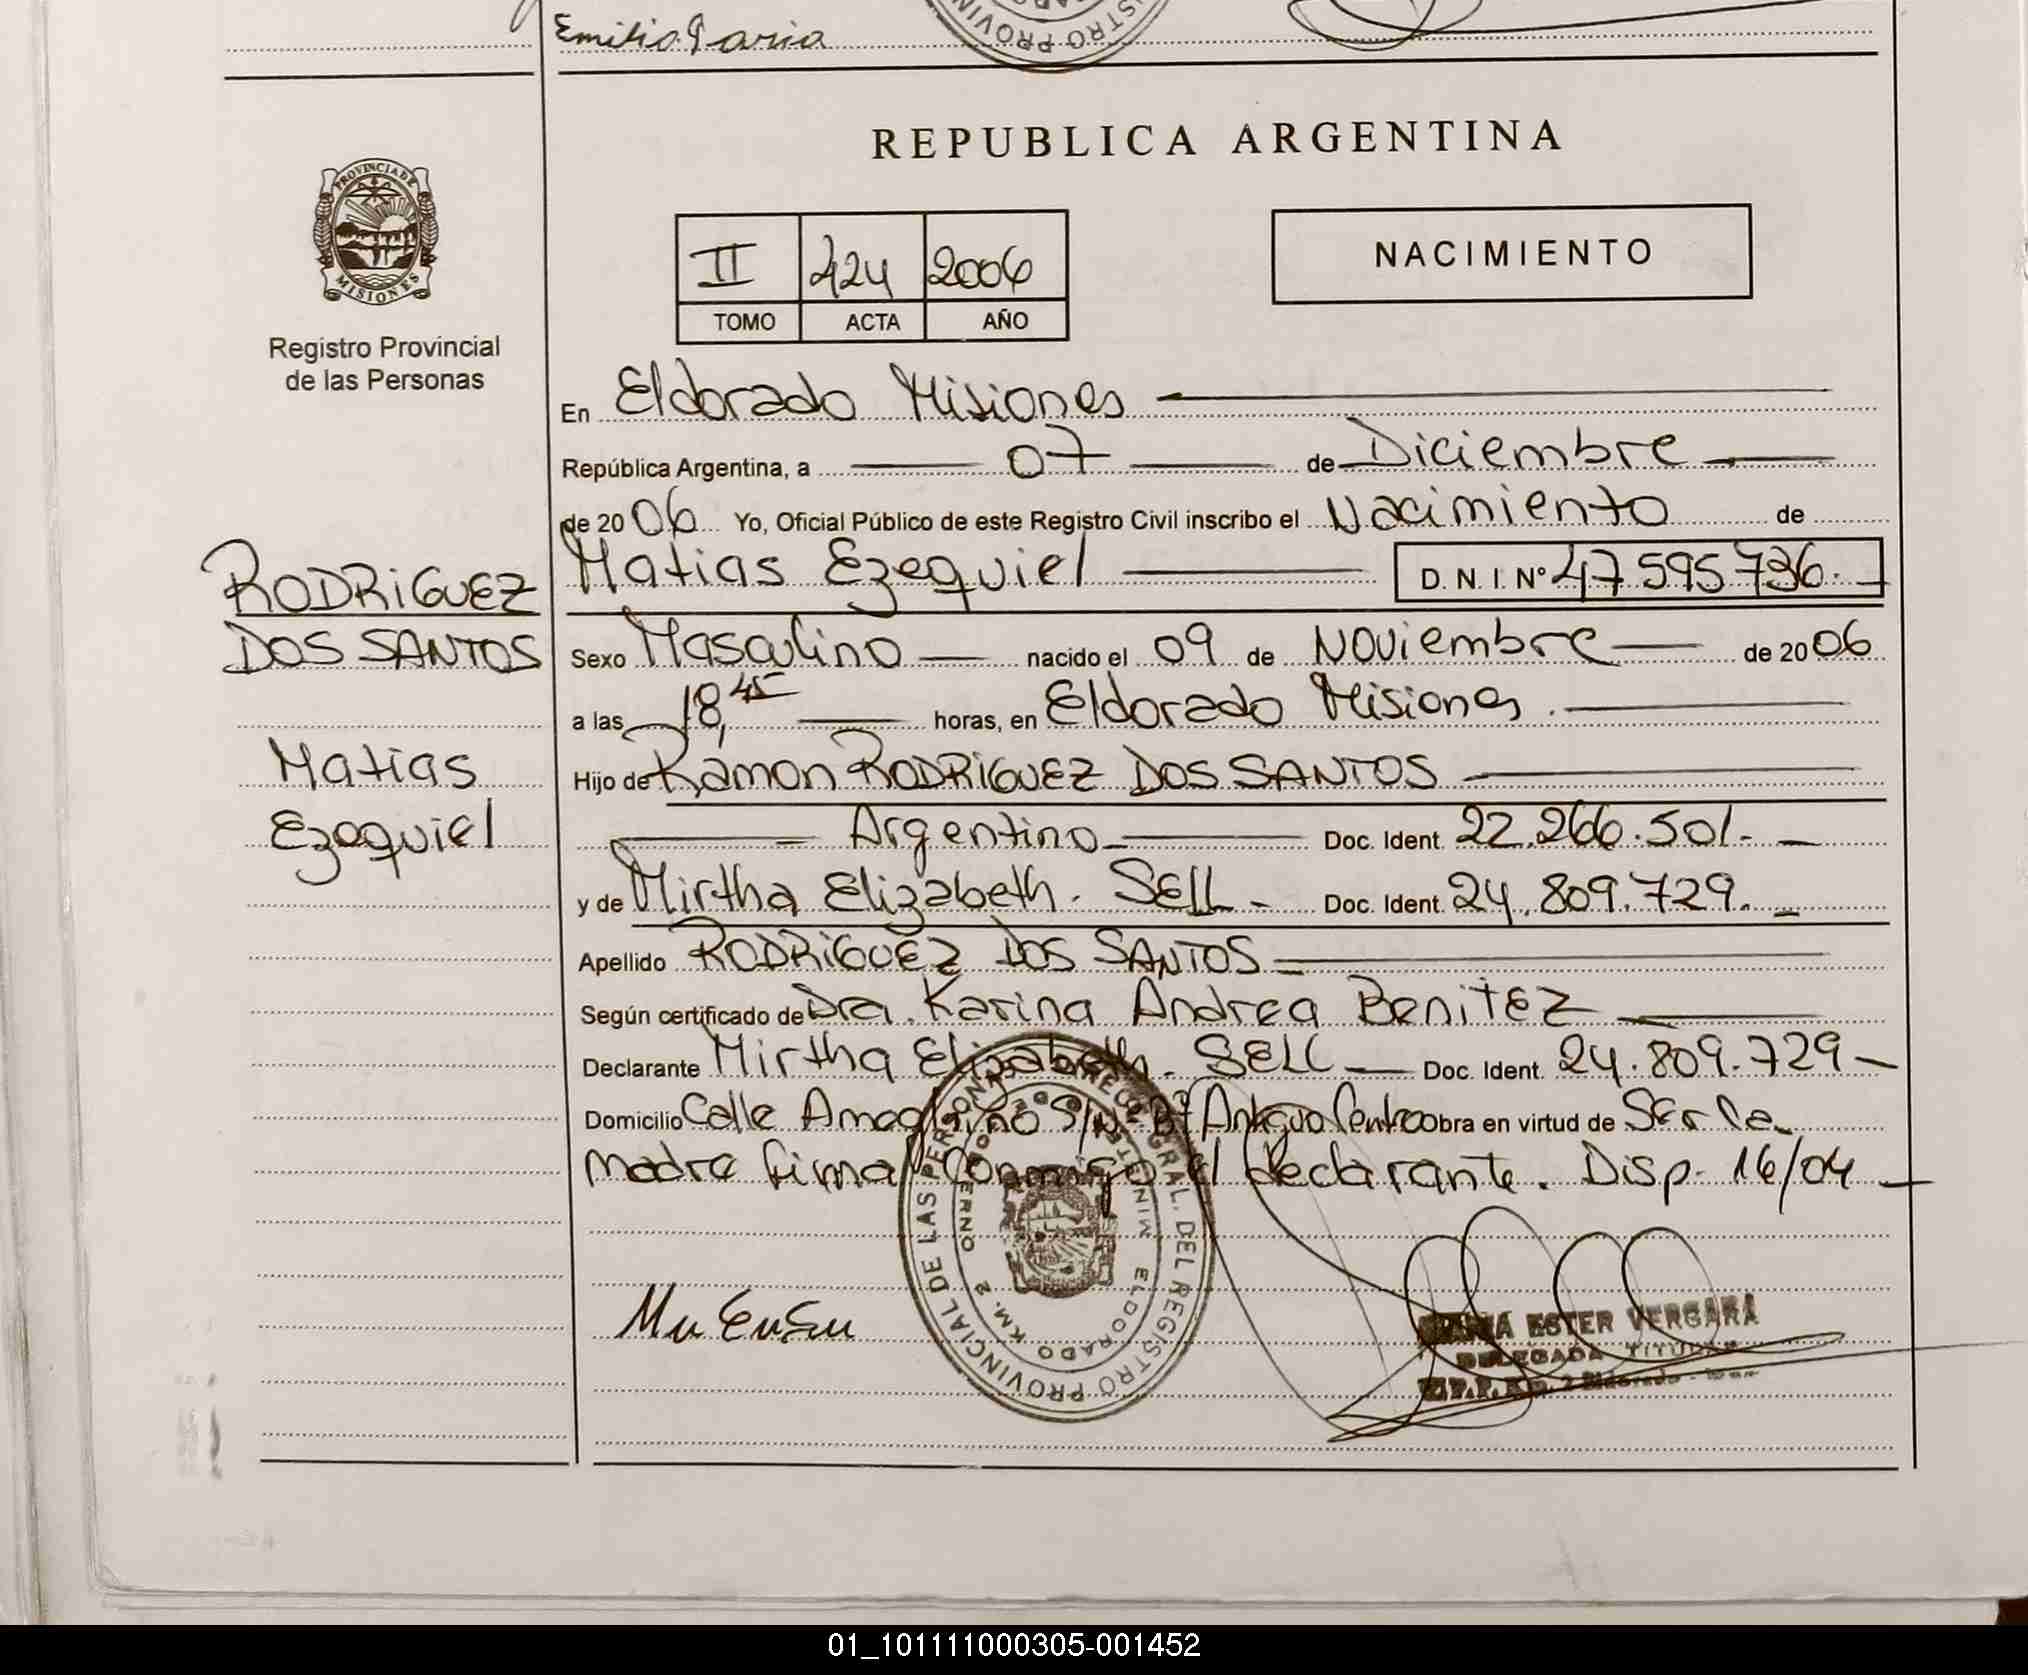 Emilio Paria
REPUBLICA ARGENTINA
PROVINCIA DE MISIONES
Registro Provincial
de las Personas
II 424 2006
TOMO ACTA AÑO
NACIMIENTO
En Eldorado Misiones
República Argentina, a 07 de Diciembre
de 2006 Yo, Oficial Público de este Registro Civil inscribo el Nacimiento de
Matias Ezequiel D. N. I. Nº 47595736.
RODRIGUEZ
DOS SANTOS
Matias
Ezequiel
Sexo Masculino nacido el 09 de Noviembre de 2006
a las 18,45 horas, en Eldorado Misiones.
Hijo de Ramon RODRIGUEZ DOS SANTOS
Argentino Doc. Ident. 22.266.501.
y de Mirtha Elizabeth. SELL - Doc. Ident. 24.809.729.
Apellido RODRIGUEZ DOS SANTOS
Según certificado de Dra. Karina Andrea BENITEZ
Declarante Mirtha Elizabeth. SELL Doc. Ident. 24.809.729
Domicilio Calle Amaghino S/Nº Bº Antiguo Centro obra en virtud de Ser la
madre firma Conmigo el declarante. Disp. 16/04
PROVINCIAL DE LAS PERSONAS DIREC. GRAL. DEL REGISTRO
ELDORADO KM. 2
MARIA ESTER VERGARA
DELEGADA TITULAR
R.P.P. Km. 2 Eldorado
01_101111000305-001452